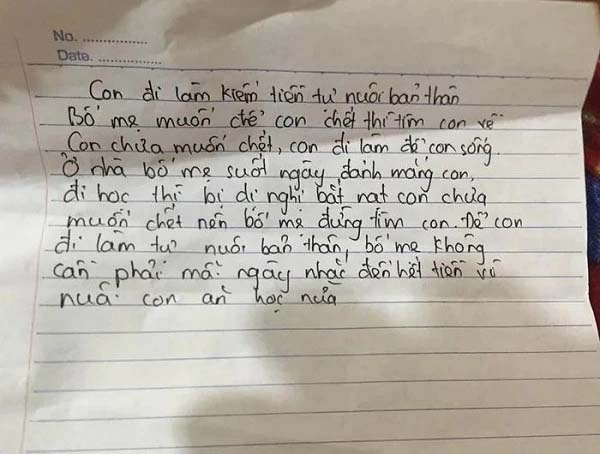 No. ..................
Date. ..................
Con đi làm kiếm tiền tự nuôi bản thân
Bố mẹ muốn để con chết thì tìm con về
Con chưa muốn chết, con đi làm để con sống.
Ở nhà bố mẹ suốt ngày đánh mắng con,
đi học thì bị dị nghị bắt nạt con chưa
muốn chết nên bố mẹ đừng tìm con. Để con
đi làm tự nuôi bản thân, bố mẹ không
cần phải mỗi ngày nhắc đến hết tiền vì
nuôi con ăn học nữa